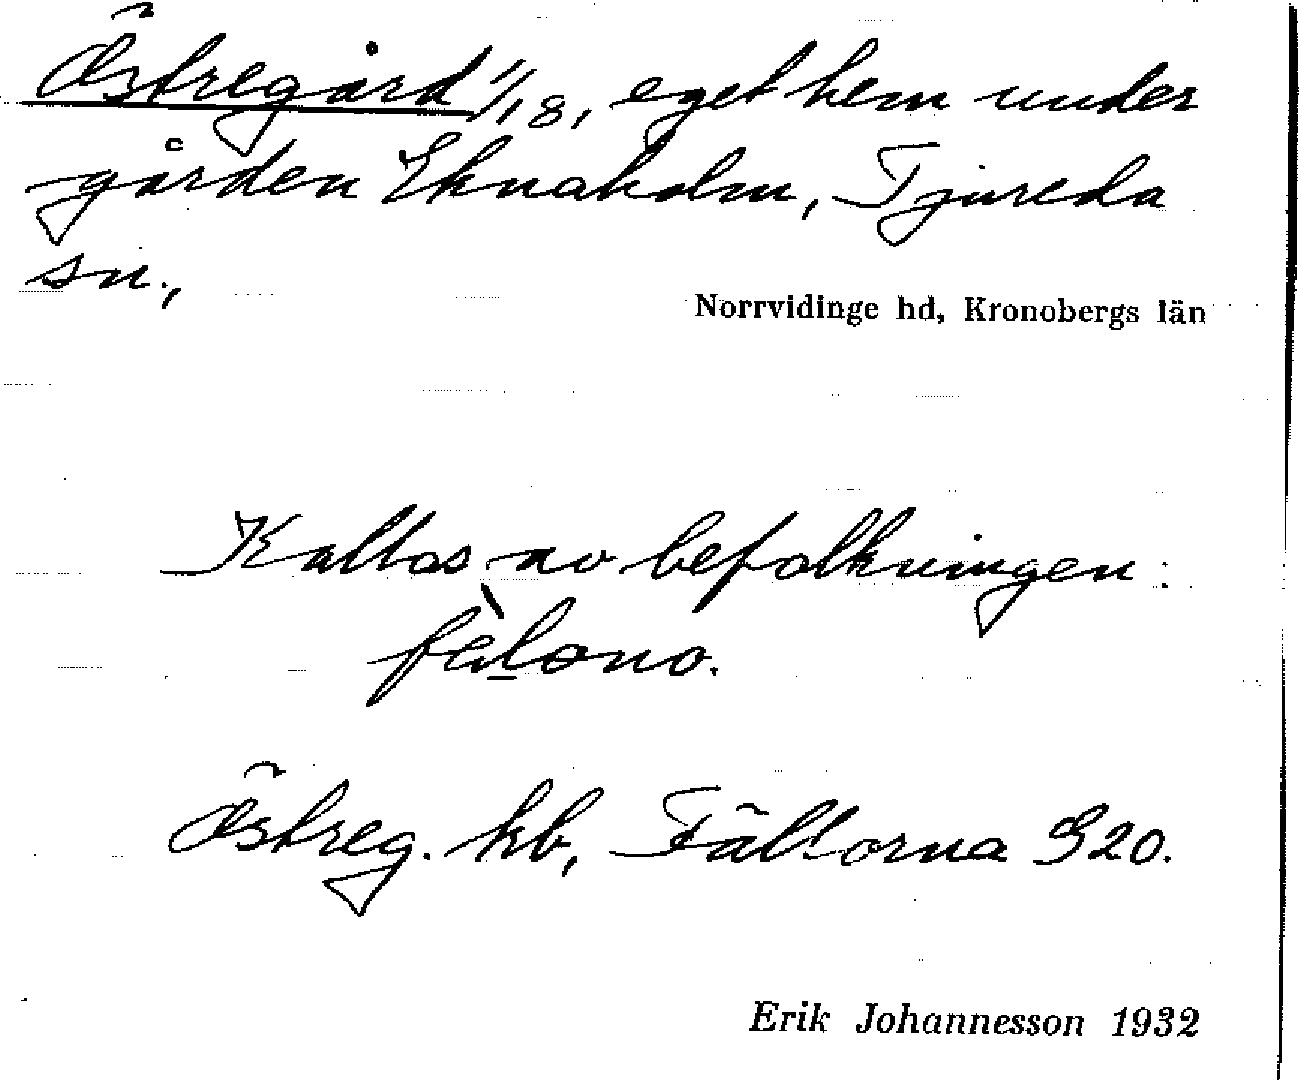 Östregård 1/18, eget hem under
gården Eknaholm, Tjureda
sn.,
Norrvidinge hd, Kronobergs län
Kallas av befolkningen:
Östreg. kb, Fällorna S20.
Erik Johannesson 1932